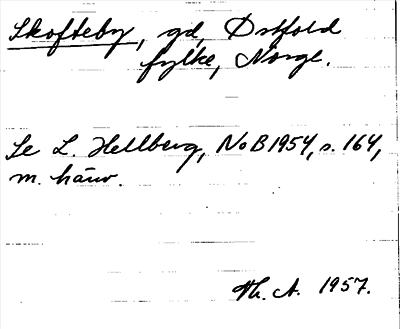 Skofteby, gd, Østfold
fylke, Norge.
Se L. Hellberg, NoB 1954, s. 164,
m. hänv.
Th. A. 1957.